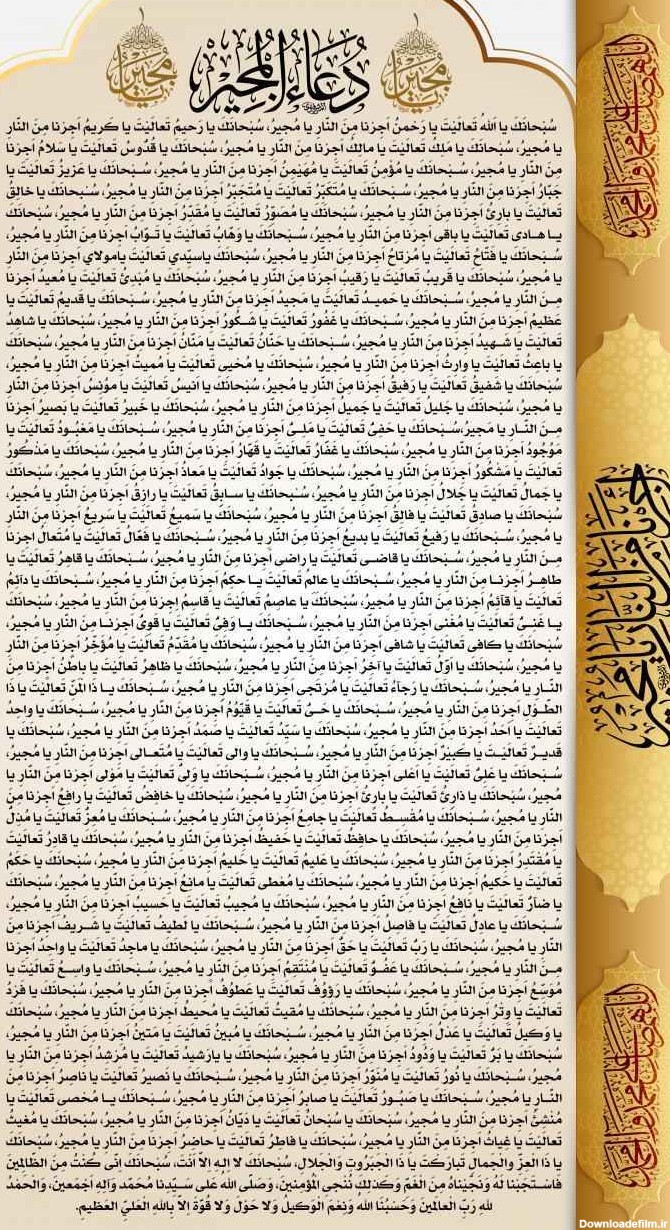 دُعَاءُ الْمُجِيْر
يا مُجيرُ
يا مُجيرُ
سُبْحانَكَ يا اَللهُ تَعالَيْتَ يا رَحْمنُ اَجِرْنا مِنَ النّارِ يا مُجيرُ، سُبْحانَكَ يا رَحيمُ تَعالَيْتَ يا كَريمُ اَجِرْنا مِنَ النّارِ
يا مُجيرُ، سُبْحانَكَ يا مَلِكُ تَعالَيْتَ يا مالِكُ اَجِرْنا مِنَ النّارِ يا مُجيرُ، سُبْحانَكَ يا قُدّوسُ تَعالَيْتَ يا سَلامُ اَجِرْنا
مِنَ النّارِ يا مُجيرُ، سُبْحانَكَ يا مُؤْمِنُ تَعالَيْتَ يا مُهَيْمِنُ اَجِرْنا مِنَ النّارِ يا مُجيرُ، سُبْحانَكَ يا عَزيزُ تَعالَيْتَ يا
جَبّارُ اَجِرْنا مِنَ النّارِ يا مُجيرُ، سُبْحانَكَ يا مُتَكَبِّرُ تَعالَيْتَ يا مُتَجَبِّرُ اَجِرْنا مِنَ النّارِ يا مُجيرُ، سُبْحانَكَ يا خالِقُ
تَعالَيْتَ يا بارِئُ اَجِرْنا مِنَ النّارِ يا مُجيرُ، سُبْحانَكَ يا مُصَوِّرُ تَعالَيْتَ يا مُقَدِّرُ اَجِرْنا مِنَ النّارِ يا مُجيرُ، سُبْحانَكَ
يا هادي تَعالَيْتَ يا باقي اَجِرْنا مِنَ النّارِ يا مُجيرُ، سُبْحانَكَ يا وَهّابُ تَعالَيْتَ يا تَوّابُ اَجِرْنا مِنَ النّارِ يا مُجيرُ،
سُبْحانَكَ يا فَتّاحُ تَعالَيْتَ يا مُرْتاحُ اَجِرْنا مِنَ النّارِ يا مُجيرُ، سُبْحانَكَ ياسَيِّدي تَعالَيْتَ يامَوْلايَ اَجِرْنا مِنَ النّارِ
يا مُجيرُ، سُبْحانَكَ يا قَريبُ تَعالَيْتَ يا رَقيبُ اَجِرْنا مِنَ النّارِ يا مُجيرُ، سُبْحانَكَ يا مُبْدِئُ تَعالَيْتَ يا مُعيدُ اَجِرْنا
مِنَ النّارِ يا مُجيرُ، سُبْحانَكَ يا حَميدُ تَعالَيْتَ يا مَجيدُ اَجِرْنا مِنَ النّارِ يا مُجيرُ، سُبْحانَكَ يا قَديمُ تَعالَيْتَ يا
عَظيمُ اَجِرْنا مِنَ النّارِ يا مُجيرُ، سُبْحانَكَ يا غَفُورُ تَعالَيْتَ يا شَكُورُ اَجِرْنا مِنَ النّارِ يا مُجيرُ، سُبْحانَكَ يا شاهِدُ
تَعالَيْتَ يا شَهيدُ اَجِرْنا مِنَ النّارِ يا مُجيرُ، سُبْحانَكَ يا حَنّانُ تَعالَيْتَ يا مَنّانُ اَجِرْنا مِنَ النّارِ يا مُجيرُ، سُبْحانَكَ
يا باعِثُ تَعالَيْتَ يا وارِثُ اَجِرْنا مِنَ النّارِ يا مُجيرُ، سُبْحانَكَ يا مُحْيي تَعالَيْتَ يا مُميتُ اَجِرْنا مِنَ النّارِ يا مُجيرُ،
سُبْحانَكَ يا شَفيقُ تَعالَيْتَ يا رَفيقُ اَجِرْنا مِنَ النّارِ يا مُجيرُ، سُبْحانَكَ يا اَنيسُ تَعالَيْتَ يا مُؤْنِسُ اَجِرْنا مِنَ النّارِ
يا مُجيرُ، سُبْحانَكَ يا جَليلُ تَعالَيْتَ يا جَميلُ اَجِرْنا مِنَ النّارِ يا مُجيرُ، سُبْحانَكَ يا خَبيرُ تَعالَيْتَ يا بَصيرُ اَجِرْنا
مِنَ النّارِ يا مُجيرُ،سُبْحانَكَ يا حَفِيُّ تَعالَيْتَ يا مَلِيُّ اَجِرْنا مِنَ النّارِ يا مُجيرُ، سُبْحانَكَ يا مَعْبُودُ تَعالَيْتَ يا
مَوْجُودُ اَجِرْنا مِنَ النّارِ يا مُجيرُ، سُبْحانَكَ يا غَفّارُ تَعالَيْتَ يا قَهّارُ اَجِرْنا مِنَ النّارِ يا مُجيرُ، سُبْحانَكَ يا مَذْكُورُ
تَعالَيْتَ يا مَشْكُورُ اَجِرْنا مِنَ النّارِ يا مُجيرُ، سُبْحانَكَ يا جَوادُ تَعالَيْتَ يا مَعاذُ اَجِرْنا مِنَ النّارِ يا مُجيرُ، سُبْحانَكَ
يا جَمالُ تَعالَيْتَ يا جَلالُ اَجِرْنا مِنَ النّارِ يا مُجيرُ، سُبْحانَكَ يا سابِقُ تَعالَيْتَ يا رازِقُ اَجِرْنا مِنَ النّارِ يا مُجيرُ،
سُبْحانَكَ يا صادِقُ تَعالَيْتَ يا فالِقُ اَجِرْنا مِنَ النّارِ يا مُجيرُ، سُبْحانَكَ يا سَميعُ تَعالَيْتَ يا سَريعُ اَجِرْنا مِنَ النّارِ
يا مُجيرُ، سُبْحانَكَ يا رَفيعُ تَعالَيْتَ يا بَديعُ اَجِرْنا مِنَ النّارِ يا مُجيرُ، سُبْحانَكَ يا فَعّالُ تَعالَيْتَ يا مُتَعالُ اَجِرْنا
مِنَ النّارِ يا مُجيرُ، سُبْحانَكَ يا قاضي تَعالَيْتَ يا راضي اَجِرْنا مِنَ النّارِ يا مُجيرُ، سُبْحانَكَ يا قاهِرُ تَعالَيْتَ يا
طاهِرُ اَجِرْنا مِنَ النّارِ يا مُجيرُ، سُبْحانَكَ يا عالِمُ تَعالَيْتَ يا حكِمُ اَجِرْنا مِنَ النّارِ يا مُجيرُ، سُبْحانَكَ يا دآئِمُ
تَعالَيْتَ يا قآئِمُ اَجِرْنا مِنَ النّارِ يا مُجيرُ، سُبْحانَكَ يا عاصِمُ تَعالَيْتَ يا قاسِمُ اَجِرْنا مِنَ النّارِ يا مُجيرُ، سُبْحانَكَ
يا غَنِيُّ تَعالَيْتَ يا مُغْني اَجِرْنا مِنَ النّارِ يا مُجيرُ، سُبْحانَكَ يا وَفِيُّ تَعالَيْتَ يا قَوِيُّ اَجِرْنا مِنَ النّارِ يا مُجيرُ،
سُبْحانَكَ يا كافي تَعالَيْتَ يا شافي اَجِرْنا مِنَ النّارِ يا مُجيرُ، سُبْحانَكَ يا مُقَدِّمُ تَعالَيْتَ يا مُؤَخِّرُ اَجِرْنا مِنَ النّارِ
يا مُجيرُ، سُبْحانَكَ يا اَوَّلُ تَعالَيْتَ يا آخِرُ اَجِرْنا مِنَ النّارِ يا مُجيرُ، سُبْحانَكَ يا ظاهِرُ تَعالَيْتَ يا باطِنُ اَجِرْنا مِنَ
النّارِ يا مُجيرُ، سُبْحانَكَ يا رَجآءُ تَعالَيْتَ يا مُرْتَجى اَجِرْنا مِنَ النّارِ يا مُجيرُ، سُبْحانَكَ يا ذَا الْمَنِّ تَعالَيْتَ يا ذَا
الطَّوْلِ اَجِرْنا مِنَ النّارِ يا مُجيرُ، سُبْحانَكَ يا حَيُّ تَعالَيْتَ يا قَيُّومُ اَجِرْنا مِنَ النّارِ يا مُجيرُ، سُبْحانَكَ يا واحِدُ
تَعالَيْتَ يا اَحَدُ اَجِرْنا مِنَ النّارِ يا مُجيرُ، سُبْحانَكَ يا سَيِّدُ تَعالَيْتَ يا صَمَدُ اَجِرْنا مِنَ النّارِ يا مُجيرُ، سُبْحانَكَ يا
قَديرُ تَعالَيْتَ يا كَبيرُ اَجِرْنا مِنَ النّارِ يا مُجيرُ، سُبْحانَكَ يا والي تَعالَيْتَ يا مُتَعالي اَجِرْنا مِنَ النّارِ يا مُجيرُ،
سُبْحانَكَ يا عَلِيُّ تَعالَيْتَ يا اَعْلى اَجِرْنا مِنَ النّارِ يا مُجيرُ، سُبْحانَكَ يا وَلِيُّ تَعالَيْتَ يا مَوْلى اَجِرْنا مِنَ النّارِ يا
مُجيرُ، سُبْحانَكَ يا ذارِئُ تَعالَيْتَ يا بارِئُ اَجِرْنا مِنَ النّارِ يا مُجيرُ، سُبْحانَكَ يا خافِضُ تَعالَيْتَ يا رافِعُ اَجِرْنا مِنَ
النّارِ يا مُجيرُ، سُبْحانَكَ يا مُقْسِطُ تَعالَيْتَ يا جامِعُ اَجِرْنا مِنَ النّارِ يا مُجيرُ، سُبْحانَكَ يا مُعِزُّ تَعالَيْتَ يا مُذِلُّ
اَجِرْنا مِنَ النّارِ يا مُجيرُ، سُبْحانَكَ يا حافِظُ تَعالَيْتَ يا حَفيظُ اَجِرْنا مِنَ النّارِ يا مُجيرُ، سُبْحانَكَ يا قادِرُ تَعالَيْتَ
يا مُقْتَدِرُ اَجِرْنا مِنَ النّارِ يا مُجيرُ، سُبْحانَكَ يا عَليمُ تَعالَيْتَ يا حَليمُ اَجِرْنا مِنَ النّارِ يا مُجيرُ، سُبْحانَكَ يا حَكَمُ
تَعالَيْتَ يا حَكيمُ اَجِرْنا مِنَ النّارِ يا مُجيرُ، سُبْحانَكَ يا مُعْطي تَعالَيْتَ يا مانِعُ اَجِرْنا مِنَ النّارِ يا مُجيرُ، سُبْحانَكَ
يا ضآرُّ تَعالَيْتَ يا نافِعُ اَجِرْنا مِنَ النّارِ يا مُجيرُ، سُبْحانَكَ يا مُجيبُ تَعالَيْتَ يا حَسيبُ اَجِرْنا مِنَ النّارِ يا مُجيرُ،
سُبْحانَكَ يا عادِلُ تَعالَيْتَ يا فاصِلُ اَجِرْنا مِنَ النّارِ يا مُجيرُ، سُبْحانَكَ يا لَطيفُ تَعالَيْتَ يا شَريفُ اَجِرْنا مِنَ
النّارِ يا مُجيرُ، سُبْحانَكَ يا رَبُّ تَعالَيْتَ يا حَقُّ اَجِرْنا مِنَ النّارِ يا مُجيرُ، سُبْحانَكَ يا ماجِدُ تَعالَيْتَ يا واحِدُ اَجِرْنا
مِنَ النّارِ يا مُجيرُ، سُبْحانَكَ يا عَفُوُّ تَعالَيْتَ يا مُنْتَقِمُ اَجِرْنا مِنَ النّارِ يا مُجيرُ، سُبْحانَكَ يا واسِعُ تَعالَيْتَ يا
مُوَسِّعُ اَجِرْنا مِنَ النّارِ يا مُجيرُ، سُبْحانَكَ يا رَؤُوفُ تَعالَيْتَ يا عَطُوفُ اَجِرْنا مِنَ النّارِ يا مُجيرُ، سُبْحانَكَ يا فَرْدُ
تَعالَيْتَ يا وِتْرُ اَجِرْنا مِنَ النّارِ يا مُجيرُ، سُبْحانَكَ يا مُقيتُ تَعالَيْتَ يا مُحيطُ اَجِرْنا مِنَ النّارِ يا مُجيرُ، سُبْحانَكَ
يا وَكيلُ تَعالَيْتَ يا عَدْلُ اَجِرْنا مِنَ النّارِ يا مُجيرُ، سُبْحانَكَ يا مُبينُ تَعالَيْتَ يا مَتينُ اَجِرْنا مِنَ النّارِ يا مُجيرُ،
سُبْحانَكَ يا بَرُّ تَعالَيْتَ يا وَدُودُ اَجِرْنا مِنَ النّارِ يا مُجيرُ، سُبْحانَكَ يارَشيدُ تَعالَيْتَ يا مُرْشِدُ اَجِرْنا مِنَ النّارِ يا
مُجيرُ، سُبْحانَكَ يا نُورُ تَعالَيْتَ يا مُنَوِّرُ اَجِرْنا مِنَ النّارِ يا مُجيرُ، سُبْحانَكَ يا نَصيرُ تَعالَيْتَ يا ناصِرُ اَجِرْنا مِنَ
النّارِ يا مُجيرُ، سُبْحانَكَ يا صَبُورُ تَعالَيْتَ يا صابِرُ اَجِرْنا مِنَ النّارِ يا مُجيرُ، سُبْحانَكَ يا مُحْصي تَعالَيْتَ يا
مُنْشِئُ اَجِرْنا مِنَ النّارِ يا مُجيرُ، سُبْحانَكَ يا سُبْحانُ تَعالَيْتَ يا دَيّانُ اَجِرْنا مِنَ النّارِ يا مُجيرُ، سُبْحانَكَ يا مُغيثُ
تَعالَيْتَ يا غِياثُ اَجِرْنا مِنَ النّارِ يا مُجيرُ، سُبْحانَكَ يا فاطِرُ تَعالَيْتَ يا حاضِرُ اَجِرْنا مِنَ النّارِ يا مُجيرُ، سُبْحانَكَ
يا ذَا الْعِزِّ وَالْجَمالِ تَبارَكْتَ يا ذَا الْجَبَروُتِ وَالْجَلالِ، سُبْحانَكَ لا اِلهَ اِلاّ اَنْتَ، سُبْحانَكَ اِنّي كُنْتُ مِنَ الظّالِمينَ
فَاسْتَجَبْنا لَهُ وَنَجَّيْناهُ مِنَ الْغَمِّ وَكَذلِكَ نُنْجِي الْمُؤْمِنينَ، وَصَلَّى اللهُ عَلى سَيِّدِنا مُحَمَّد وَآلِهِ اَجْمَعينَ، وَالْحَمْدُ
للهِ رَبِّ الْعالَمينَ وَحَسْبُنَا اللهُ وَنِعْمَ الْوَكيلُ وَلا حَوْلَ وَلا قُوَّةَ اِلاّ بِاللهِ الْعَلِيِّ الْعَظيمِ.
اللهم صل علی محمد وآل محمد
اجرنا من النار یا مجیر
اللهم صل علی محمد وآل محمد
Downloadefilm.ir